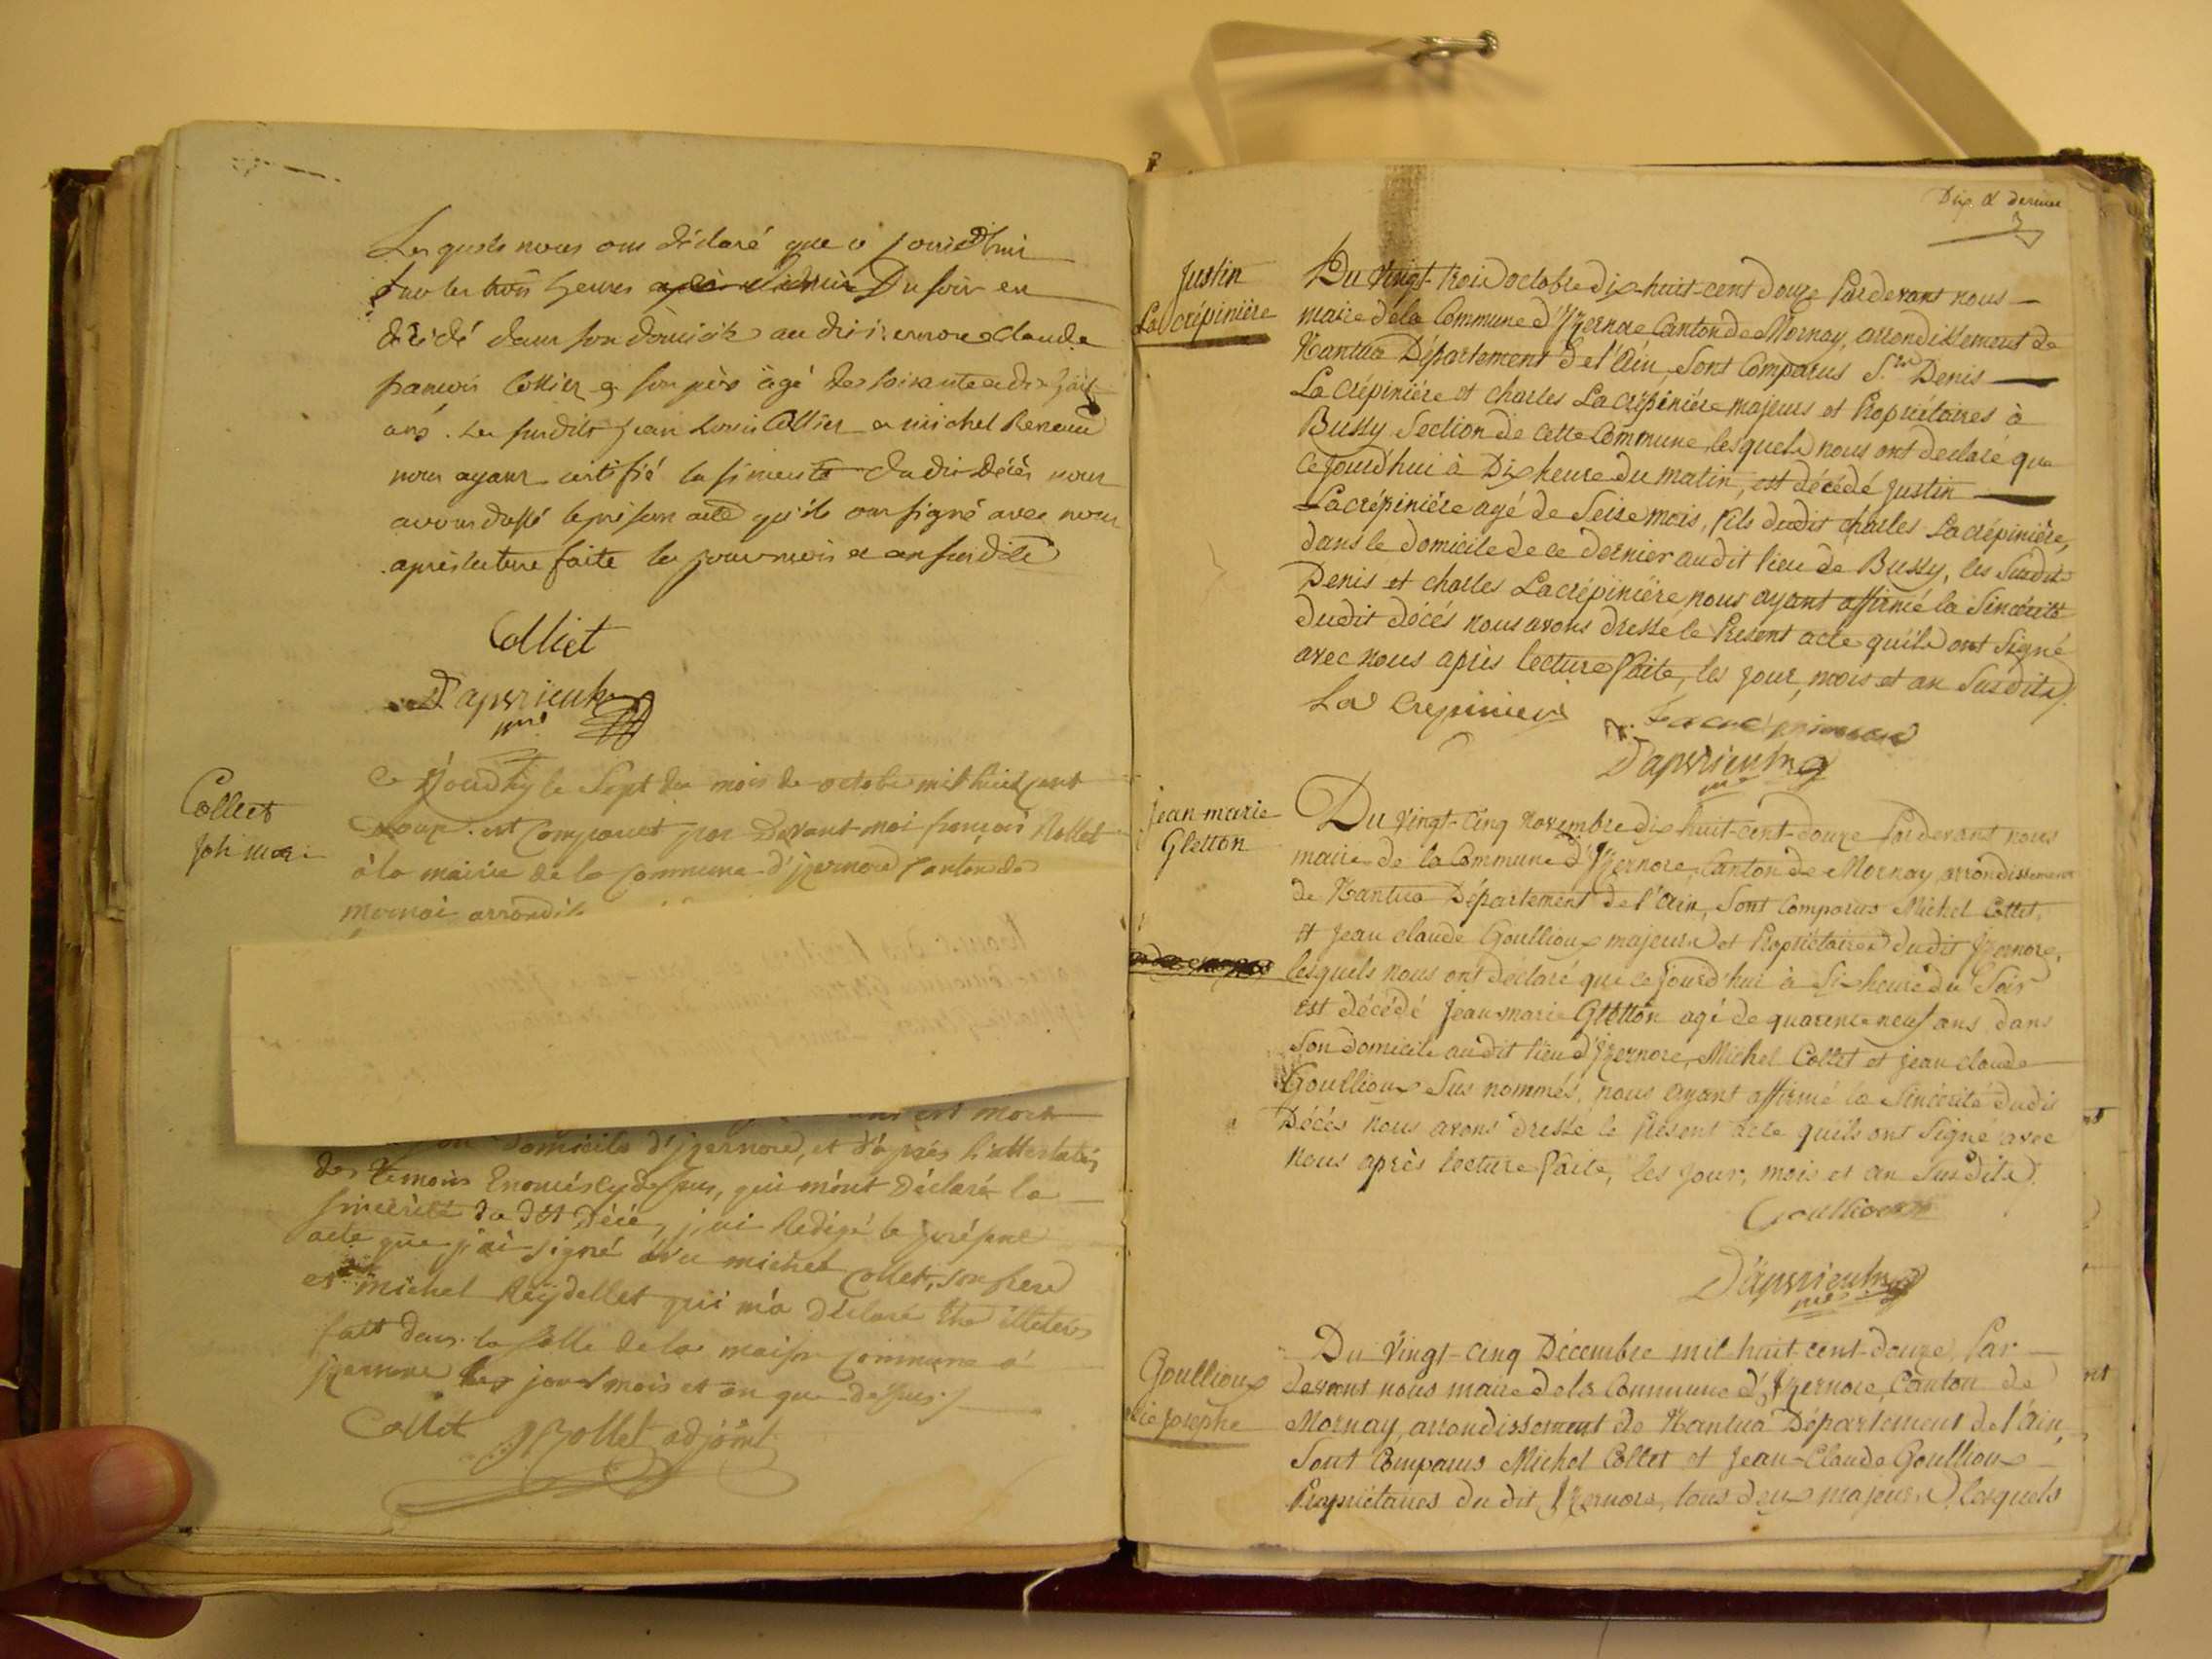 Les quels nous ont déclaré que ce jourd'hui
sur les trois heures du soir est
décédé dans son domicile au dit izernore Claude
françois Collier son père âgé de soixante et dix huit
ans. Les susdits jean Louis Collier et michel Renaud
nous ayant certifié la sincerité du dit Décès nous
avons dressé le présent acte qu'ils ont signé avec nous
après lecture faite les jour mois et an susdits
Colliet
D'apvrieulx
mre
Collet
jph mari
Ce jourdhuy le Sept du mois de octobre mil huit cent
Douze est Comparut par Devant moi françois Nollet
à la mairie de la commune d'izernore canton de
mornai arrondis
est mort
domicile d'izernore, et d'après l'attestation
des temoins Enoncés cy dessus, qui m'ont Déclaré la
sincérité du dit Décé, j'ai Redigé le présent
acte que j'ai signé avec michel Collet, son frere
et michel Reydellet qui m'a Déclaré être illeteré
fait dans la salle de la maison commune a
izernore les jour mois et an que dessus ./.
Collet Nollet adjoint
Dix et dernier
Justin
Lacrépinière
Du vingt-trois octobre dix-huit-cent douze Pardevant nous
maire de la Commune d'Yzernore Canton de Mornay, arrondissement de
Nantua Département de l'Ain, Sont Comparus S.rs Denis
Lacrépinière et charles Lacrépinière majeurs et Propriétaires à
Bussy Section de cette Commune, lesquels nous ont declaré que
Cejourd'hui à Dix heure du matin, est décédé Justin
Lacrépiniére agé de Seise mois, fils dudit charles Lacrépiniére,
dans le domicile de ce dernier audit lieu de Bussy, les Susdits
Denis et charles Lacrépiniére nous ayant affirmé la Sincérité
dudit décés nous avons dressé le Présent acte qu'ils ont Signé
avec nous après lecture faite, les jour, mois et an Susdits.
La Crepiniere D. Lacrepiniere
D'apvrieulx
mre
jean marie
Gletton
Du vingt-cinq novembre dix huit-cent-douze Pardevant nous
maire de la Commune d'Yzernore, Canton de Mornay arrondissement
de Nantua Département de l'Ain, Sont Comparus Michel Collet,
et Jean claude Goullioux majeurs et Propriétaires dudit Yzernore,
lesquels nous ont déclaré que ce jourd'hui à Six heure du Soir
est décédé Jean-marie Gletton agé de quarente neuf ans, dans
Son domicile audit lieu d'Yzernore, Michel Collet et jean claude
Goullioux Sus nommés, nous ayant affirmé la Sincérité dudit
Décés nous avons dressé le présent acte qu'ils ont Signé avec
nous après lecture faite, les jour, mois et an Susdits.
Goullioux
D'apvrieulx
mre
Goullioux
rie Josephe
Du Vingt-cinq Décembre mil huit-cent-douze, Par
devant nous maire de la Commune d'Yzernore, Canton de
Mornay, arrondissement de Nantua Département de l'Ain,
Sont Comparus Michel Collet et Jean-Claude Goullioux
Propriétaires du dit Yzernore, tous deux majeurs, lesquels
nt